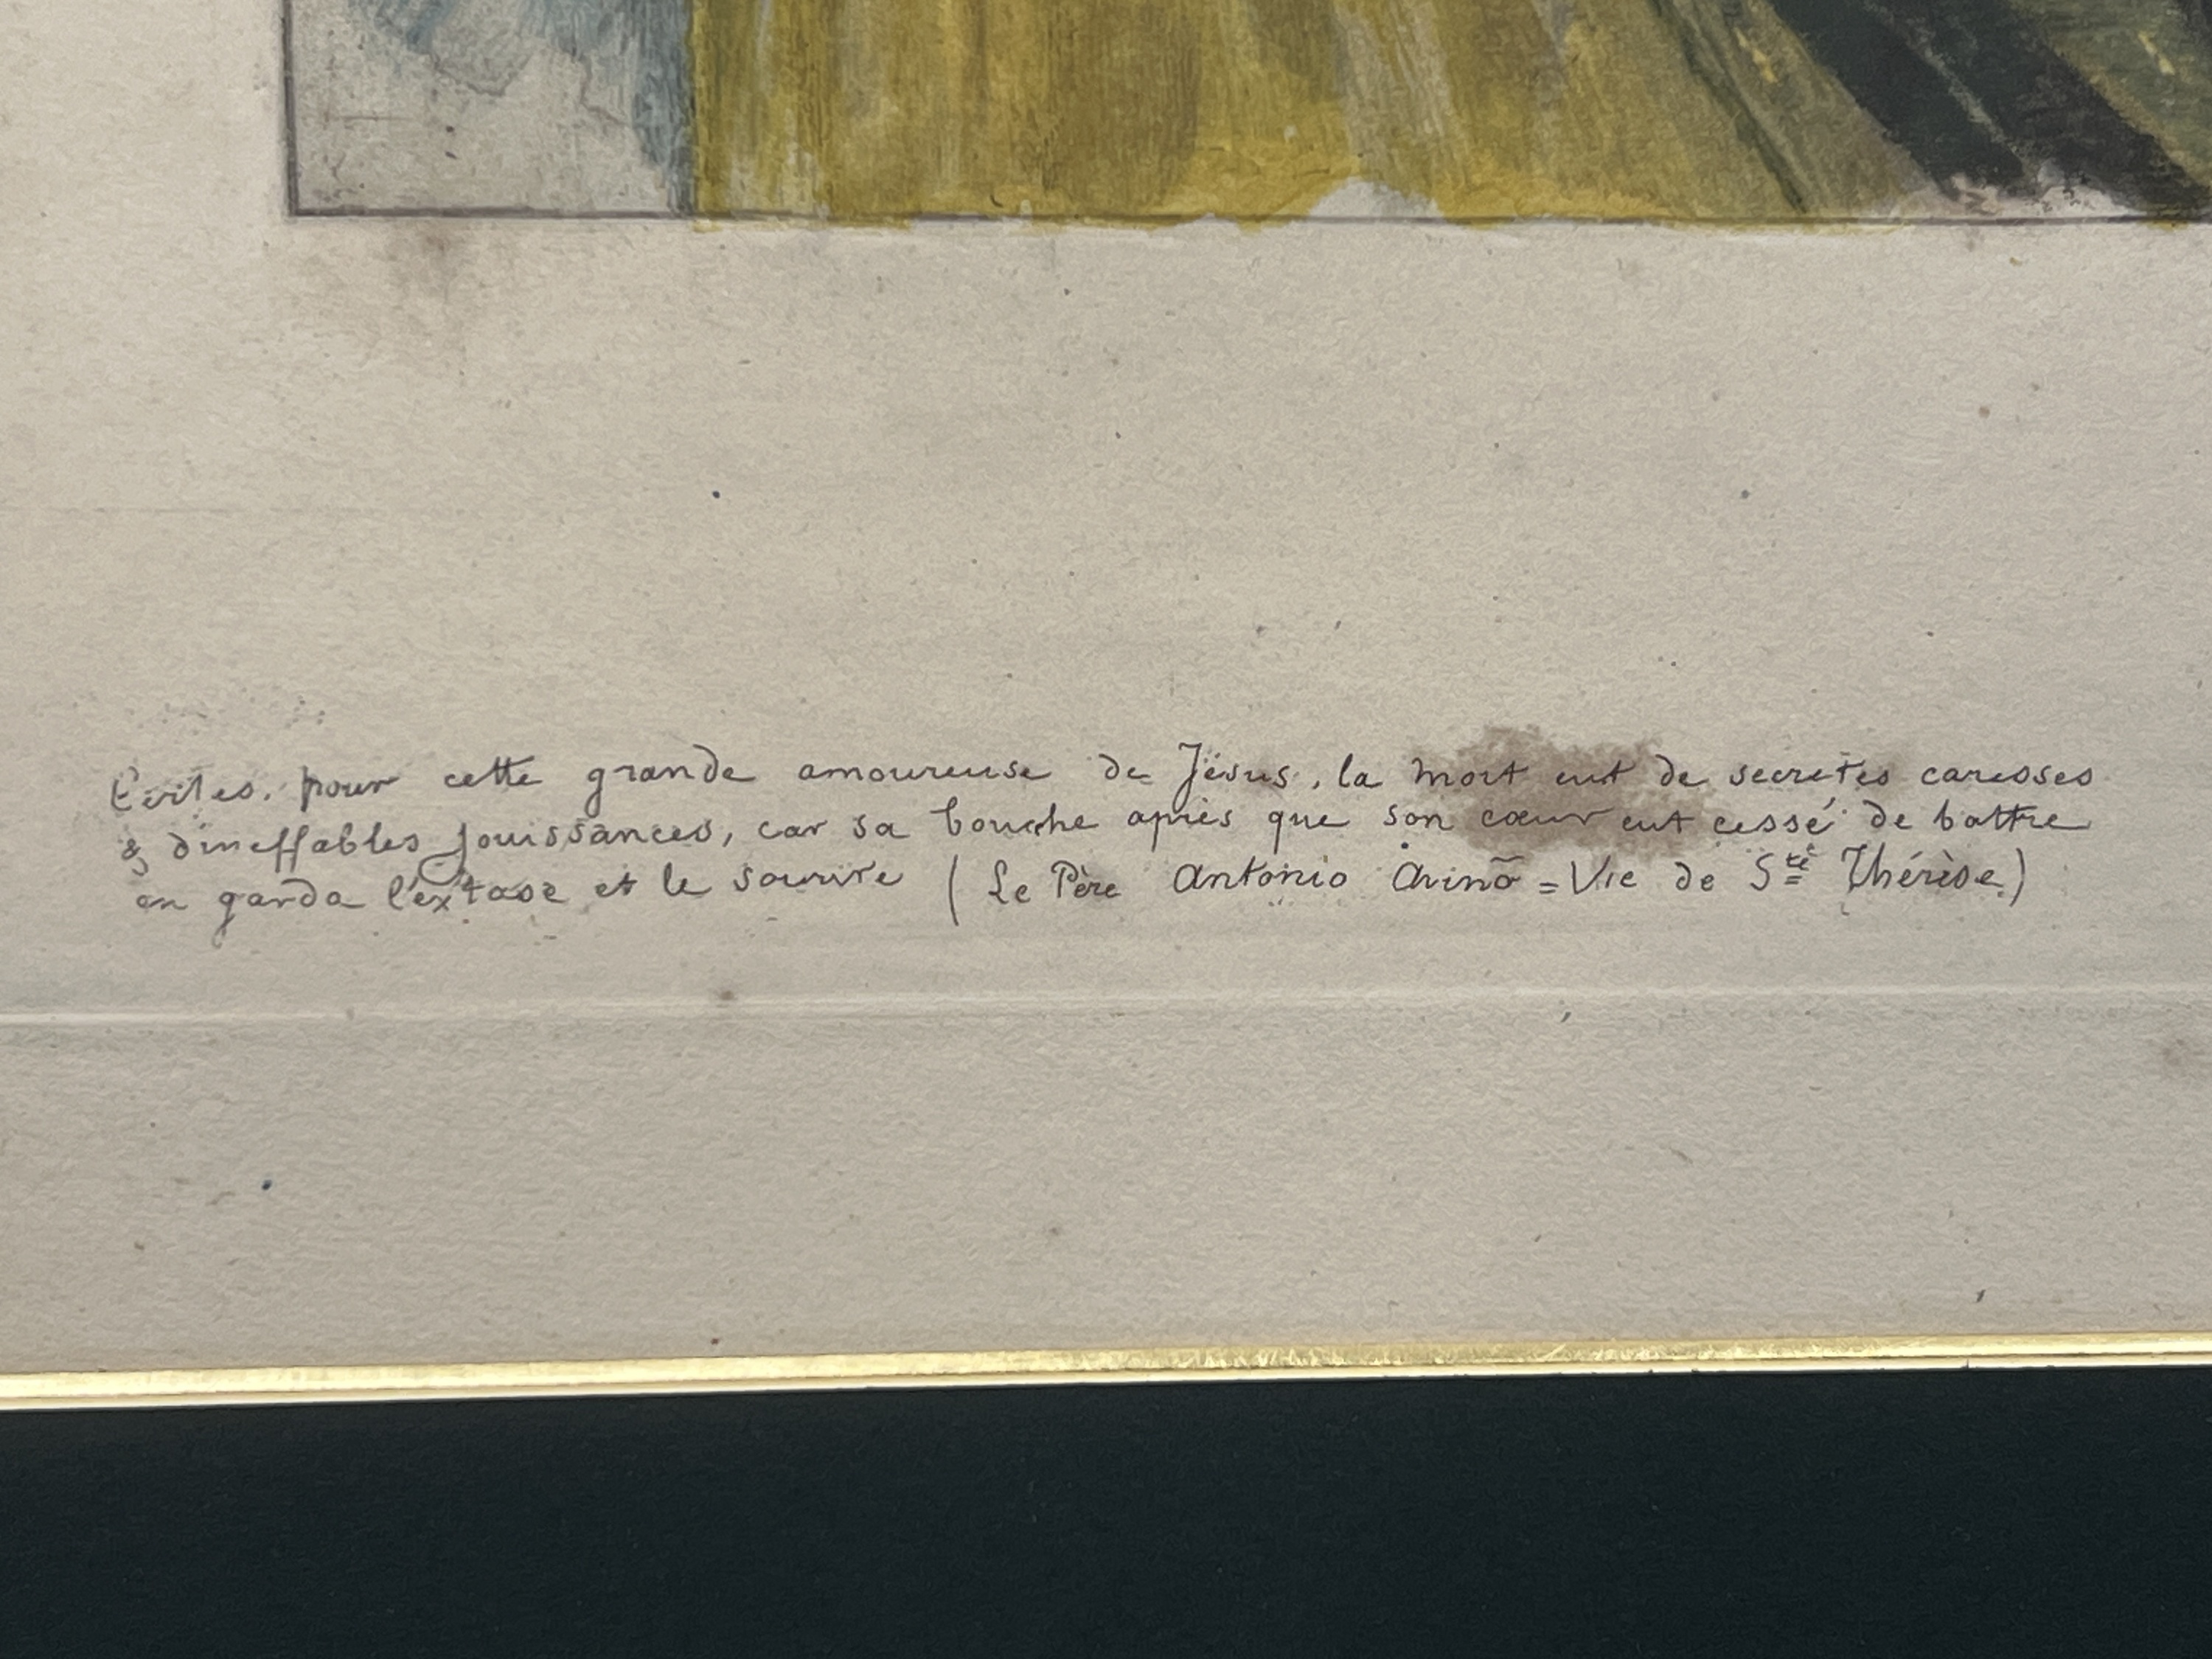 Certes, pour cette grande amoureuse de Jésus, la mort eut de secrètes caresses
& d'ineffables jouissances, car sa bouche après que son cœur eut cessé de battre
en garda l'éxtase et le sourire ( Le Père Antonio Arinõ = Vie de Ste Thérèse.)